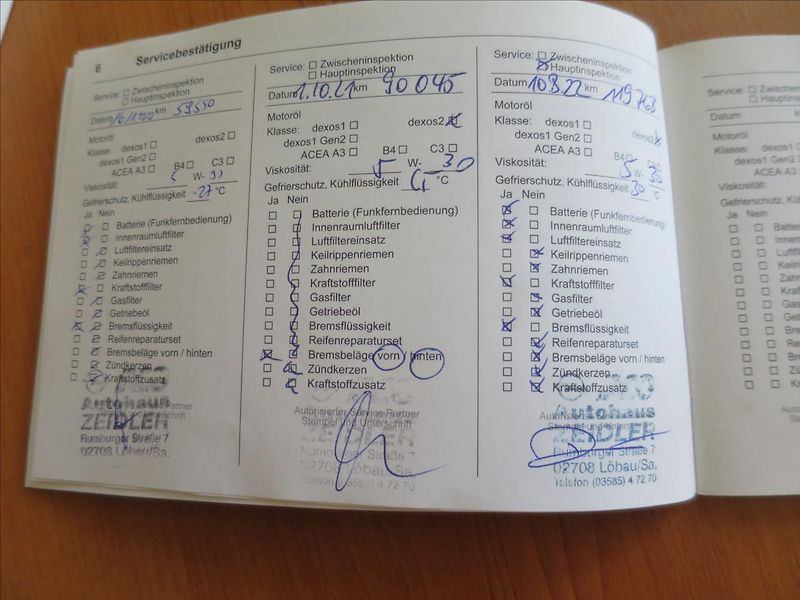 6 Servicebestätigung
Service: ☐ Zwischeninspektion
☐ Hauptinspektion
Datum km 59550
Motoröl
Klasse: dexos1 ☐ dexos2 ☐
dexos1 Gen2 ☐
ACEA A3 ☐ B4 ☐ C3 ☐
Viskosität: 5 W- 30
Gefrierschutz, Kühlflüssigkeit -27 °C
Ja Nein
Batterie (Funkfernbedienung)
Innenraumluftfilter
Luftfiltereinsatz
Keilrippenriemen
Zahnriemen
Kraftstofffilter
Gasfilter
Getriebeöl
Bremsflüssigkeit
Reifenreparaturset
Bremsbeläge vorn / hinten
Zündkerzen
Kraftstoffzusatz
Autohaus
ZEIDLER
Rumburger Straße 7
02708 Löbau/Sa.
Service: ☐ Zwischeninspektion
☐ Hauptinspektion
Datum 1.10.21 km 90045
Motoröl
Klasse: dexos1 ☐ dexos2 ☒
dexos1 Gen2 ☐
ACEA A3 ☐ B4 ☐ C3 ☐
Viskosität: 5 W- 30
Gefrierschutz, Kühlflüssigkeit °C
Ja Nein
Batterie (Funkfernbedienung)
Innenraumluftfilter
Luftfiltereinsatz
Keilrippenriemen
Zahnriemen
Kraftstofffilter
Gasfilter
Getriebeöl
Bremsflüssigkeit
Reifenreparaturset
Bremsbeläge vorn / hinten
Zündkerzen
Kraftstoffzusatz
Autorisierter Service Partner
Stempel und Unterschrift
ZEIDLER
Rumburger Straße 7
02708 Löbau/Sa.
Telefon (03585) 4 72 70
Service: ☐ Zwischeninspektion
☒ Hauptinspektion
Datum 10.8.22 km 119703
Motoröl
Klasse: dexos1 ☐ dexos2 ☒
dexos1 Gen2 ☐
ACEA A3 ☐ B4 ☐ C3 ☐
Viskosität: 5 W- 30
Gefrierschutz, Kühlflüssigkeit 30 °C
Ja Nein
Batterie (Funkfernbedienung)
Innenraumluftfilter
Luftfiltereinsatz
Keilrippenriemen
Zahnriemen
Kraftstofffilter
Gasfilter
Getriebeöl
Bremsflüssigkeit
Reifenreparaturset
Bremsbeläge vorn / hinten
Zündkerzen
Kraftstoffzusatz
Autohaus
ZEIDLER
Rumburger Straße 7
02708 Löbau/Sa.
Telefon (03585) 4 72 70
Service: ☐ Zwischen
☐ Hauptinsp
Datum
Motoröl
Klasse: dexos1 ☐
dexos1 Gen2 ☐
ACEA A3 ☐
Viskosität:
Gefrierschutz, Kühlflüs
Ja Nein
Batte
Innen
Luftf
Keilr
Zahn
Kraft
Gas
Getr